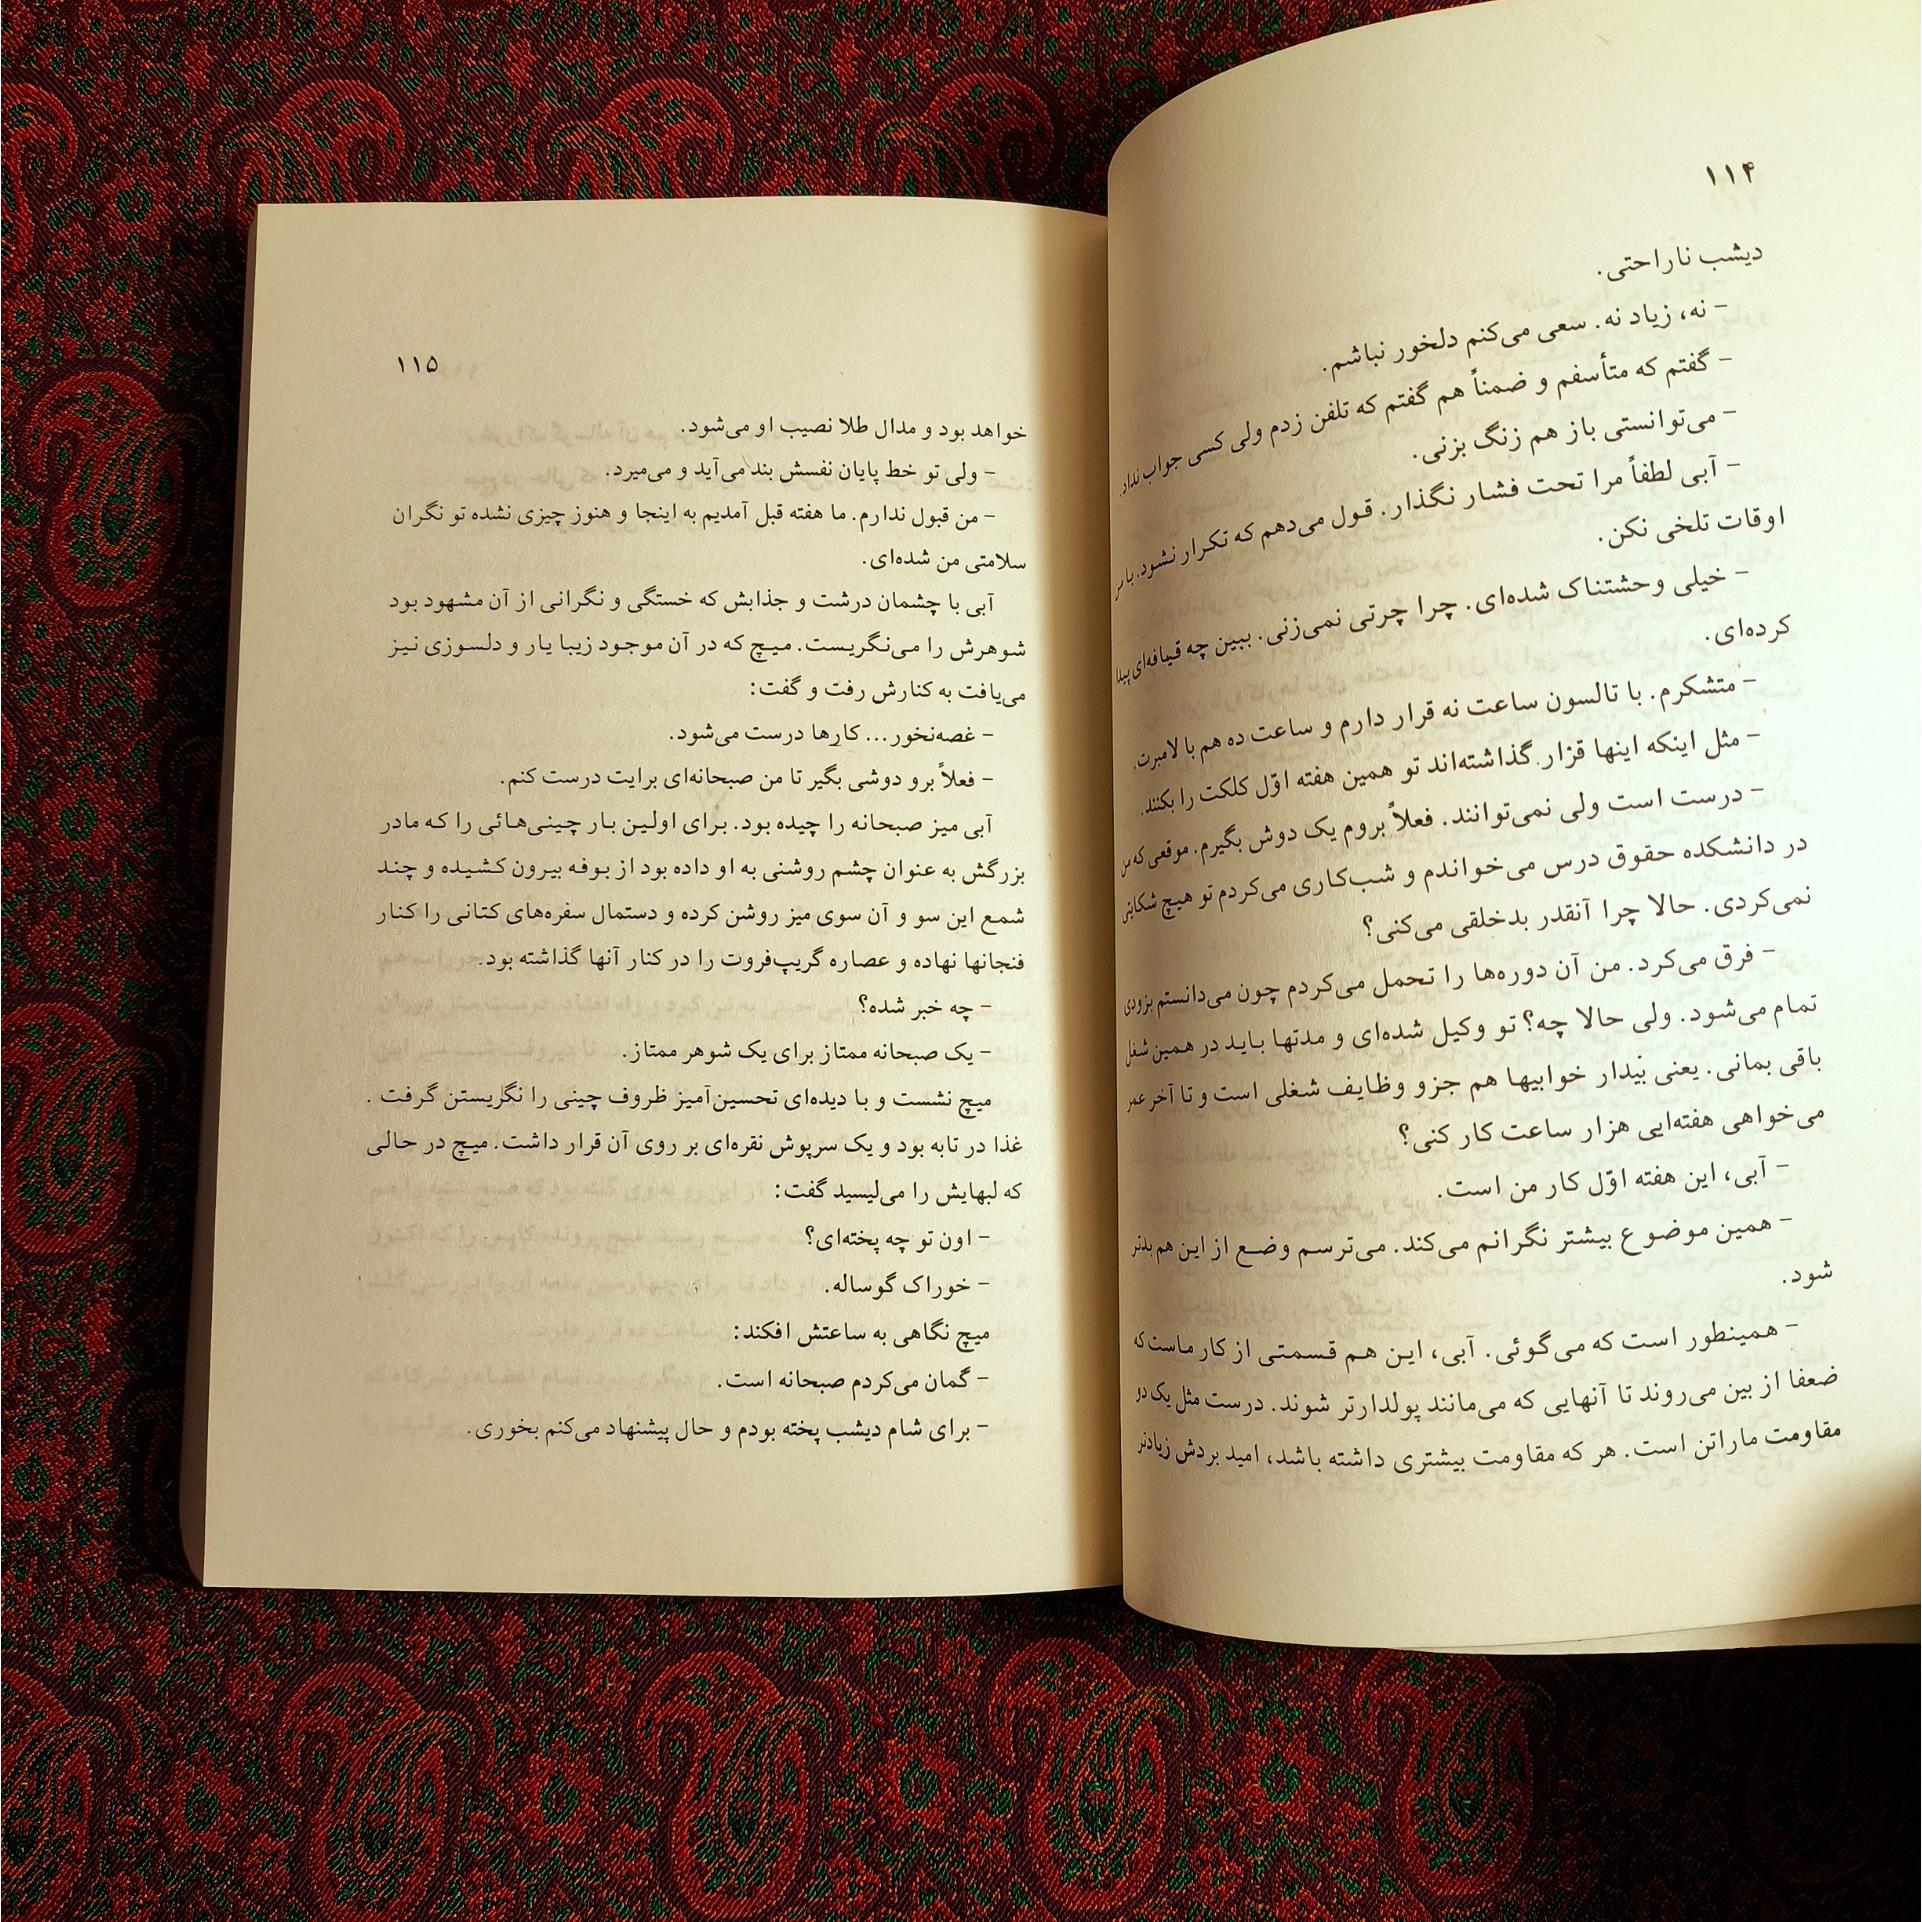 ۱۱۴
دیشب ناراحتی.
- نه، زیاد نه. سعی می‌کنم دلخور نباشم.
- گفتم که متأسفم و ضمناً هم گفتم که تلفن زدم ولی کسی جواب نداد.
- می‌توانستی باز هم زنگ بزنی.
- آبی لطفاً مرا تحت فشار نگذار. قول می‌دهم که تکرار نشود. با من
اوقات تلخی نکن.
- خیلی وحشتناک شده‌ای. چرا چرتی نمی‌زنی. ببین چه قیافه‌ای پیدا
کرده‌ای.
- متشکرم. با تالسون ساعت نه قرار دارم و ساعت ده هم با لامبرت.
- مثل اینکه اینها قرار گذاشته‌اند تو همین هفته اوّل کلکت را بکنند.
- درست است ولی نمی‌توانند. فعلاً بروم یک دوش بگیرم. موقعی که من
در دانشکده حقوق درس می‌خواندم و شب‌کاری می‌کردم تو هیچ شکایتی
نمی‌کردی. حالا چرا آنقدر بدخلقی می‌کنی؟
- فرق می‌کرد. من آن دوره‌ها را تحمل می‌کردم چون می‌دانستم بزودی
تمام می‌شود. ولی حالا چه؟ تو وکیل شده‌ای و مدتها باید در همین شغل
باقی بمانی. یعنی بیدار خوابیها هم جزو وظایف شغلی است و تا آخر عمر
می‌خواهی هفته‌ایی هزار ساعت کار کنی؟
- آبی، این هفته اوّل کار من است.
- همین موضوع بیشتر نگرانم می‌کند. می‌ترسم وضع از این هم بدتر
شود.
- همینطور است که می‌گوئی. آبی، این هم قسمتی از کار ماست که
ضعفا از بین می‌روند تا آنهایی که می‌مانند پولدارتر شوند. درست مثل یک دو
مقاومت ماراتن است. هر که مقاومت بیشتری داشته باشد، امید بردش زیادتر
۱۱۵
خواهد بود و مدال طلا نصیب او می‌شود.
- ولی تو خط پایان نفسش بند می‌آید و می‌میرد.
- من قبول ندارم. ما هفته قبل آمدیم به اینجا و هنوز چیزی نشده تو نگران
سلامتی من شده‌ای.
آبی با چشمان درشت و جذابش که خستگی و نگرانی از آن مشهود بود
شوهرش را می‌نگریست. میچ که در آن موجود زیبا یار و دلسوزی نیز
می‌یافت به کنارش رفت و گفت:
- غصه‌نخور... کارها درست می‌شود.
- فعلاً برو دوشی بگیر تا من صبحانه‌ای برایت درست کنم.
آبی میز صبحانه را چیده بود. برای اولین بار چینی‌هائی را که مادر
بزرگش به عنوان چشم روشنی به او داده بود از بوفه بیرون کشیده و چند
شمع این سو و آن سوی میز روشن کرده و دستمال سفره‌های کتانی را کنار
فنجانها نهاده و عصاره گریپ‌فروت را در کنار آنها گذاشته بود.
- چه خبر شده؟
- یک صبحانه ممتاز برای یک شوهر ممتاز.
میچ نشست و با دیده‌ای تحسین‌آمیز ظروف چینی را نگریستن گرفت .
غذا در تابه بود و یک سرپوش نقره‌ای بر روی آن قرار داشت. میچ در حالی
که لبهایش را می‌لیسید گفت:
- اون تو چه پخته‌ای؟
- خوراک گوساله.
میچ نگاهی به ساعتش افکند:
- گمان می‌کردم صبحانه است.
- برای شام دیشب پخته بودم و حال پیشنهاد می‌کنم بخوری.